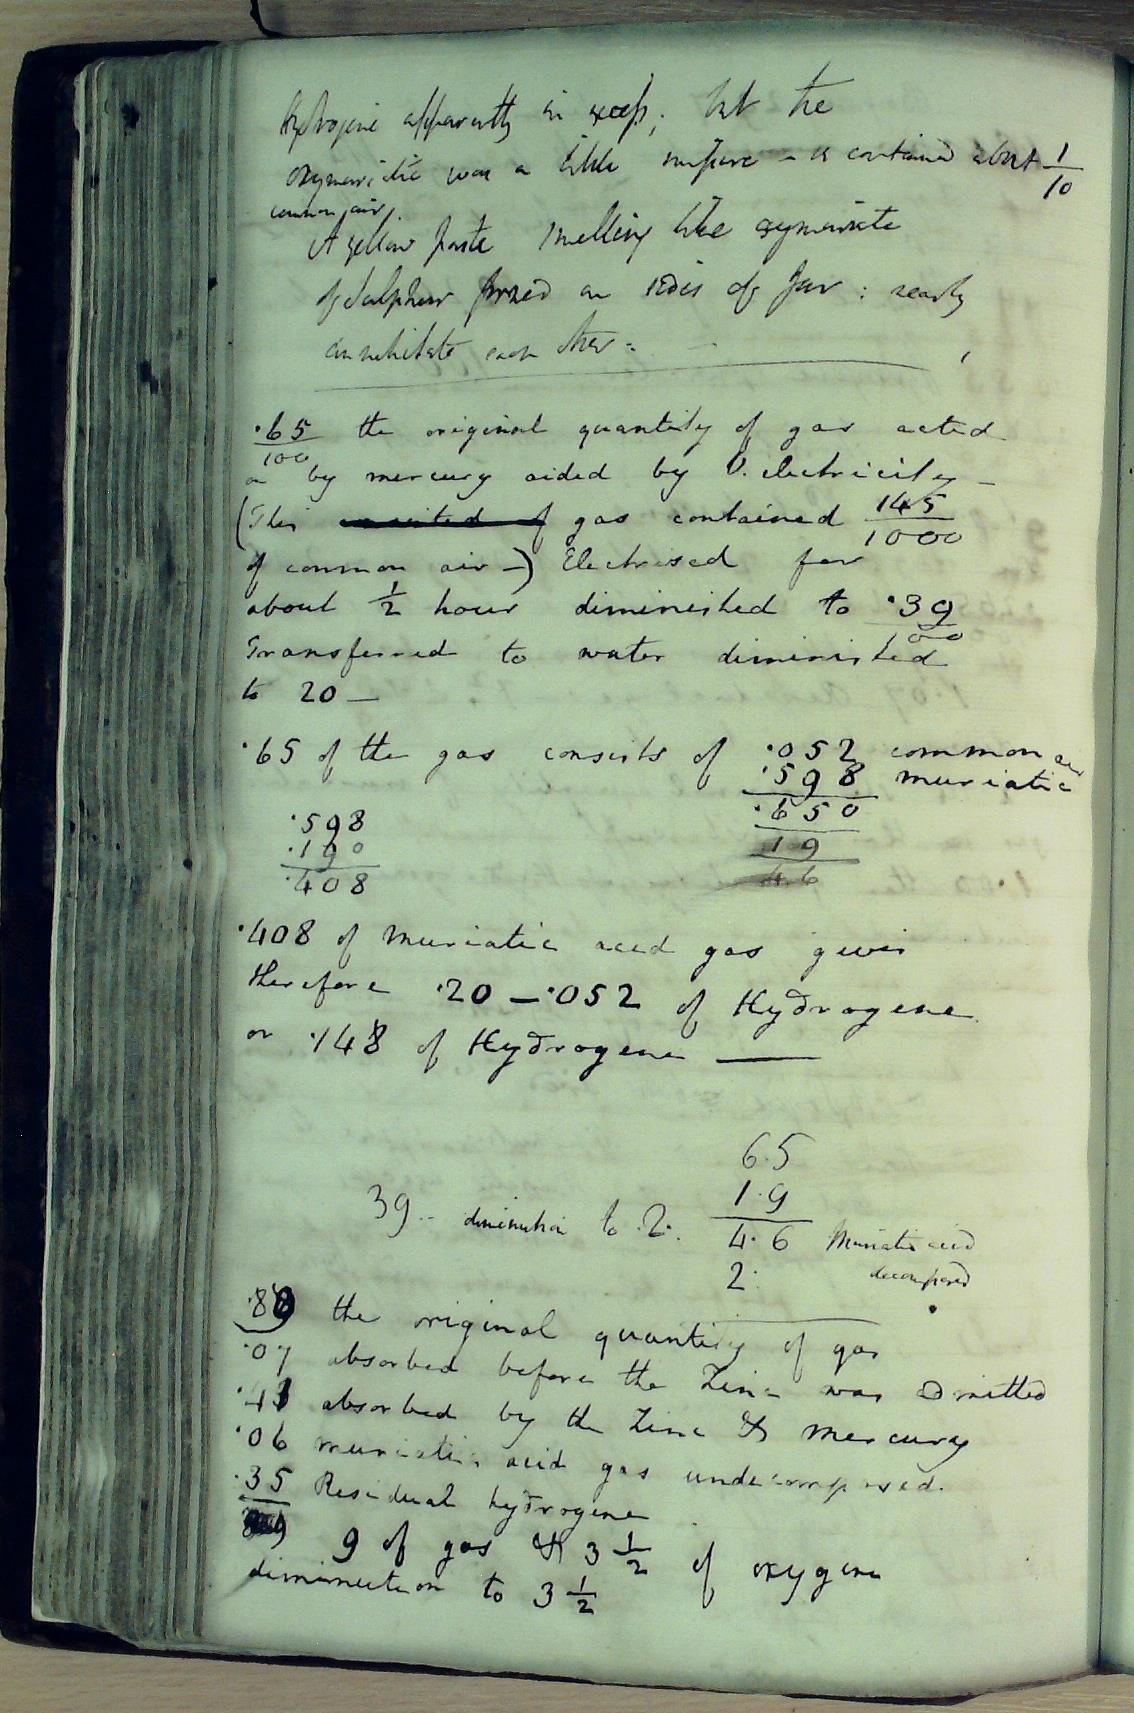 Hydrogene apparently in excess; but the
oxymuriatic was a little impure - it contained about 1/10
common air.
A yellow paste smelling like oxymuriate
of Sulphur formed on sides of Jar : nearly
annihilate each other -
.65/100 the original quantity of gas acted
on by mercury aided by V. electricity -
(This consisted of gas contained 145/1000
of common air -) Electrised for
about 1/2 hour diminished to .39/100
Transferred to water diminished
to 20 -
.65 of the gas consists of .052 common air
.598 muriatic
.650
.598
.190
.408
19
46
.408 of Muriatic acid gas gives
therefore .20 - .052 of Hydrogene
or .148 of Hydrogene
6.5
1.9
39 - diminution to .2. 4.6 Muriatic acid
2. decomposed
.89 the original quantity of gas
.07 absorbed before the Zinc was admitted
.41 absorbed by the Zinc & mercury
.06 muriatic acid gas undecomposed.
.35 Residual hydrogene
9 of gas & 3 1/2 of oxygene
diminution to 3 1/2